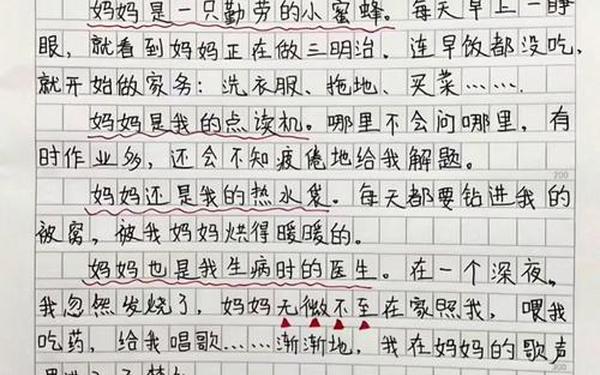 妈妈是一只勤劳的小蜜蜂。每天早上一睁
眼，就看到妈妈正在做三明治。连早饭都没吃，
就开始做家务：洗衣服、拖地、买菜……
妈妈是我的点读机。哪里不会问哪里，有
时作业多，还会不知疲倦地给我解题。
200
妈妈还是我的热水袋。每天都要钻进我的
被窝，被我妈妈烘得暖暖的。
妈妈也是我生病时的医生。在一个深夜，
我忽然发烧了，妈妈无微不至在家照我，喂我
吃药，给我唱歌……渐渐地，我在妈妈的歌声
300